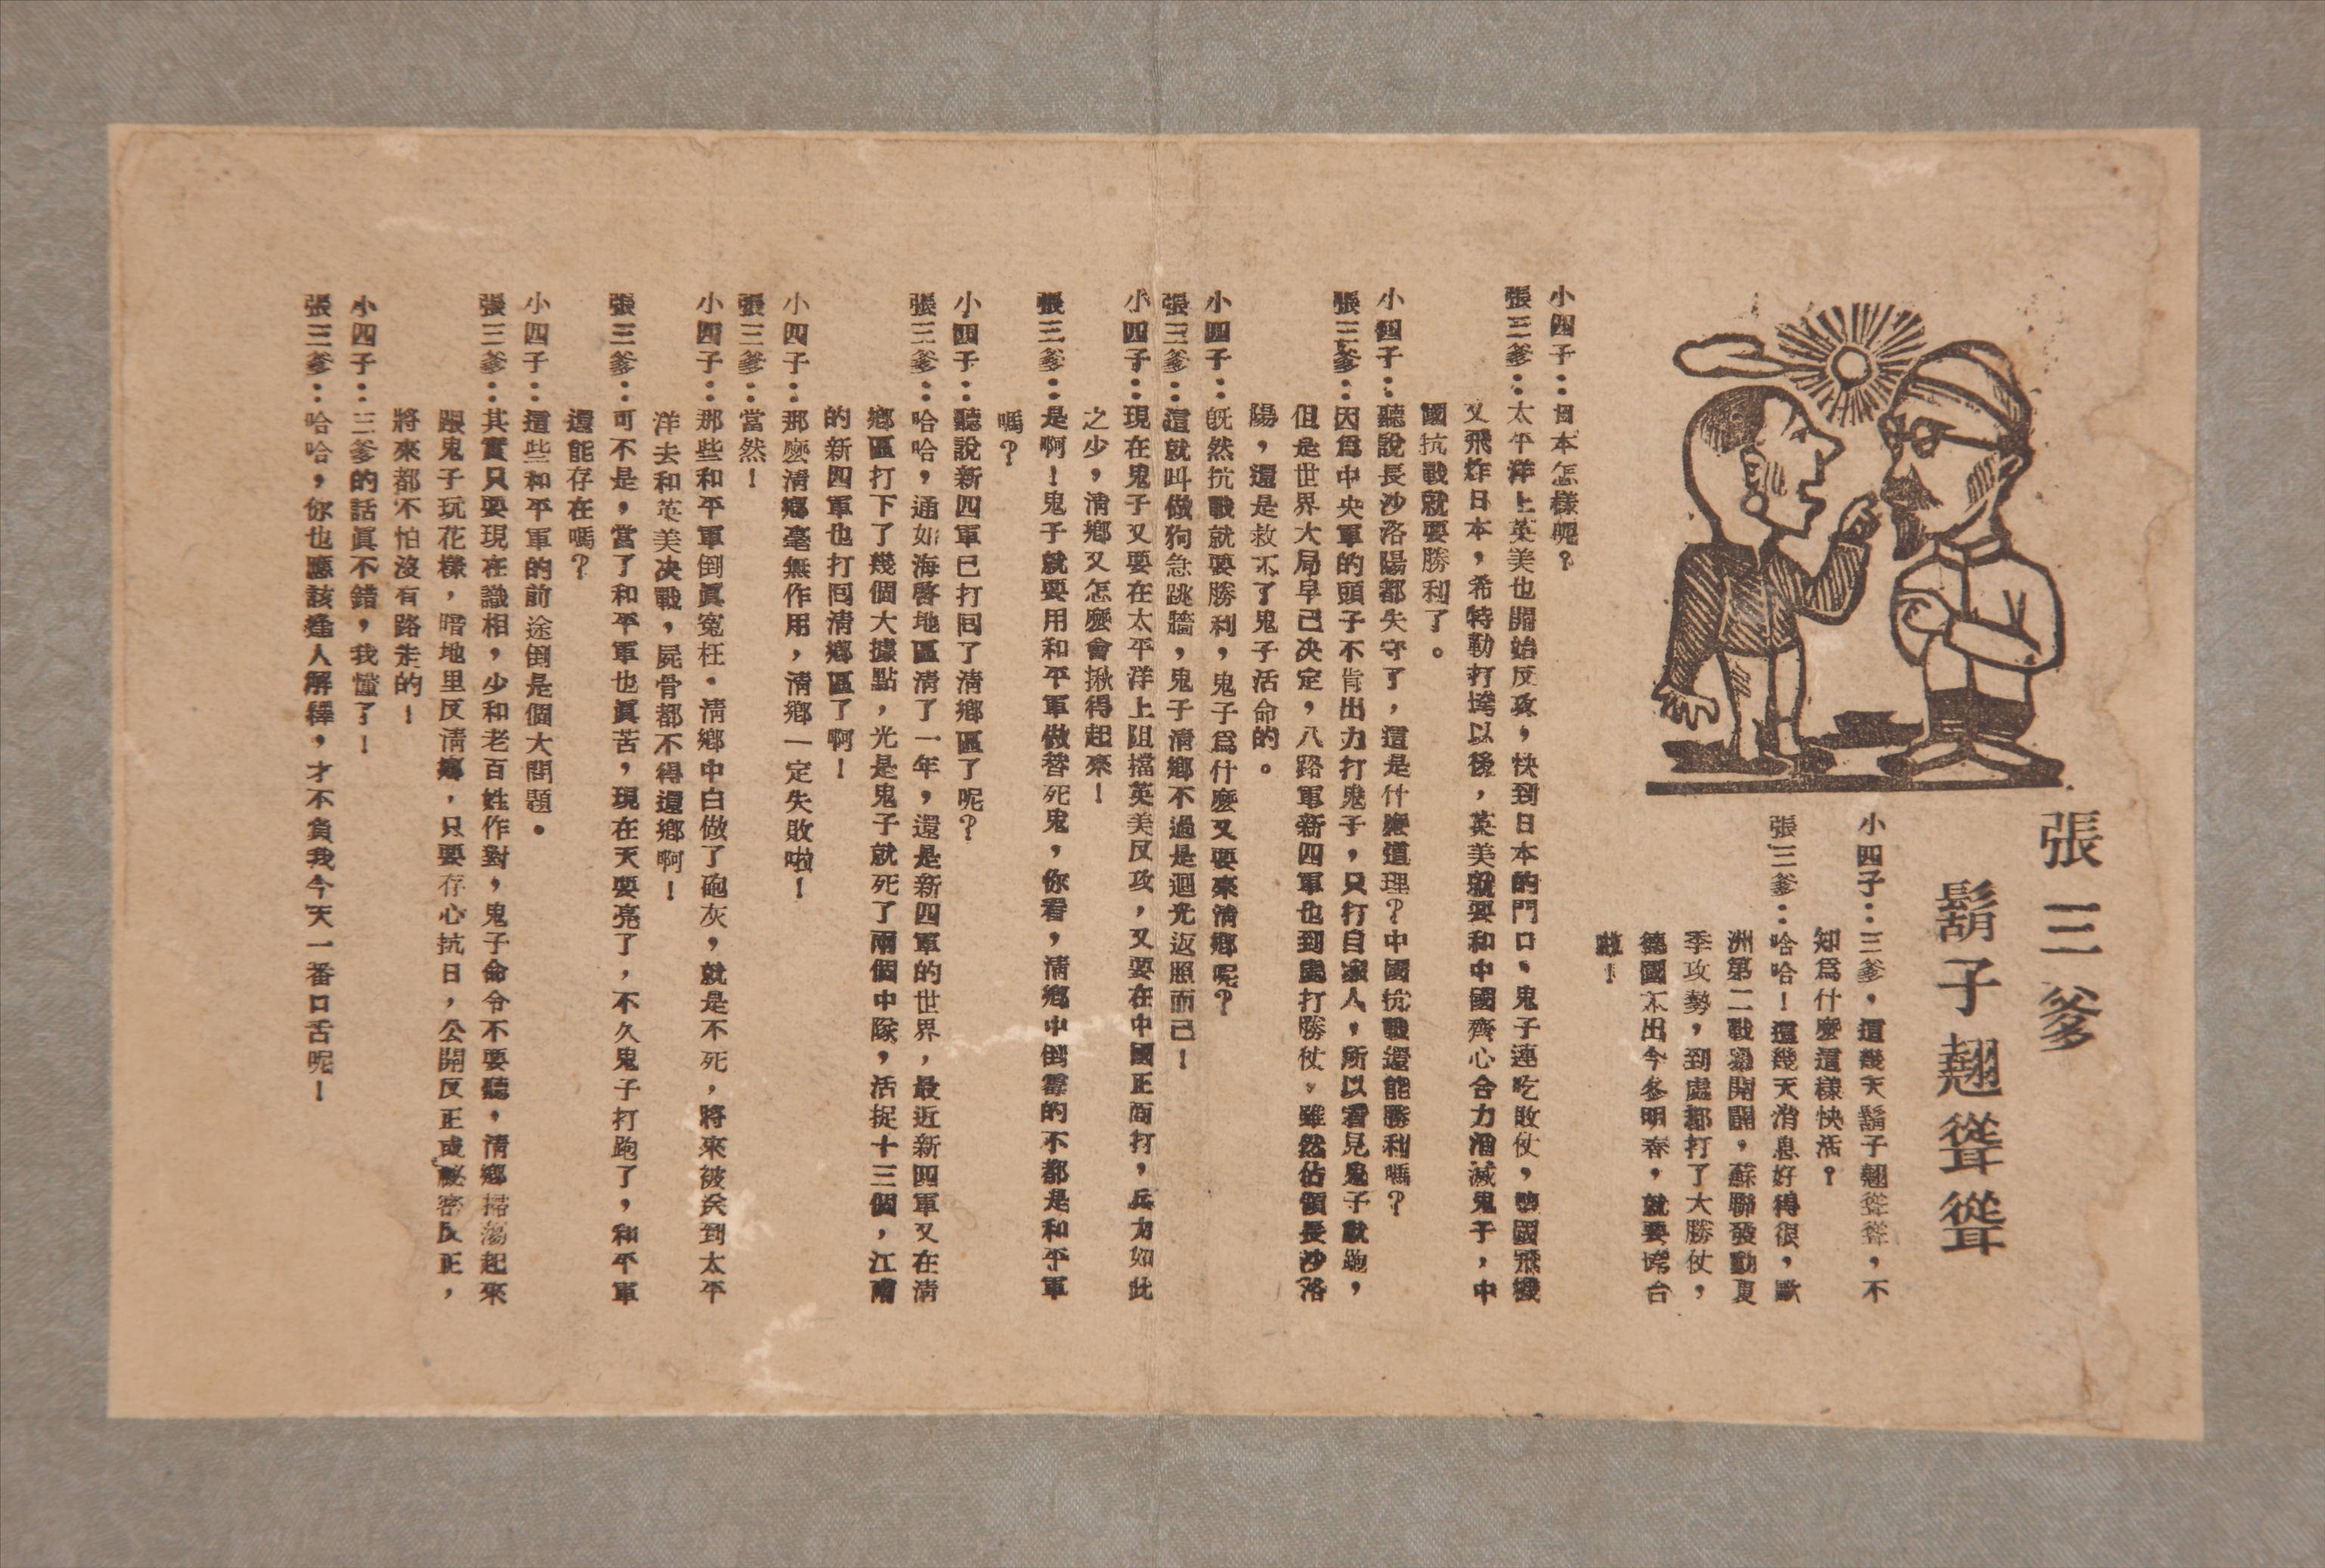 張三爹
鬍子翹聳聳
小四子：三爹，這幾天鬍子翹聳聳，不
知爲什麼這樣快活？
張三爹：哈哈！這幾天消息好得很，歐
洲第二戰場開闢，蘇聯發動夏
季攻勢，到處都打了大勝仗，
德國不出今冬明春，就要垮台
啦！
小四子：日本怎樣呢？
張三爹：太平洋上英美也開始反攻，快到日本的門口，鬼子連吃敗仗，國飛機
又飛炸日本，希特勒打垮以後，英美就要和中國齊心合力消滅鬼子，中
國抗戰就要勝利了。
小四子：聽說長沙洛陽都失守了，這是什麼道理？中國抗戰還能勝利嗎？
張三爹：因爲中央軍的頭子不肯出力打鬼子，只打自家人，所以看見鬼子就跑，
但是世界大局早已決定，八路軍新四軍也到處打勝仗，雖然佔領長沙洛
陽，還是救不了鬼子活命的。
小四子：既然抗戰就要勝利，鬼子爲什麼又要來清鄉呢？
張三爹：這就叫做狗急跳牆，鬼子清鄉不過是迴光返照而已！
小四子：現在鬼子又要在太平洋上阻擋英美反攻，又要在中國正面打，兵力如此
之少，清鄉又怎麼會揪得起來！
張三爹：是啊！鬼子就要用和平軍做替死鬼，你看，清鄉中倒霉的不都是和平軍
嗎？
小四子：聽說新四軍已打回了清鄉區了呢？
張三爹：哈哈，通如海啓地區清了一年，還是新四軍的世界，最近新四軍又在清
鄉區打下了幾個大據點，光是鬼子就死了兩個中隊，活捉十三個，江南
的新四軍也打回清鄉區了啊！
小四子：那麼清鄉毫無作用，清鄉一定失敗啦！
張三爹：當然！
小四子：那些和平軍倒眞冤枉．清鄉中白做了砲灰，就是不死，將來被送到太平
洋去和英美決戰，屍骨都不得還鄉啊！
張三爹：可不是，當了和平軍也眞苦，現在天要亮了，不久鬼子打跑了，和平軍
還能存在嗎？
小四子：這些和平軍的前途倒是個大問題．
張三爹：其實只要現在識相，少和老百姓作對，鬼子命令不要聽，清鄉掃蕩起來
跟鬼子玩花樣，暗地里反清鄉，只要存心抗日，公開反正或秘密反正，
將來都不怕沒有路走的！
小四子：三爹的話眞不錯，我懂了！
張三爹：哈哈，你也應該逢人解釋，才不負我今天一番口舌呢！